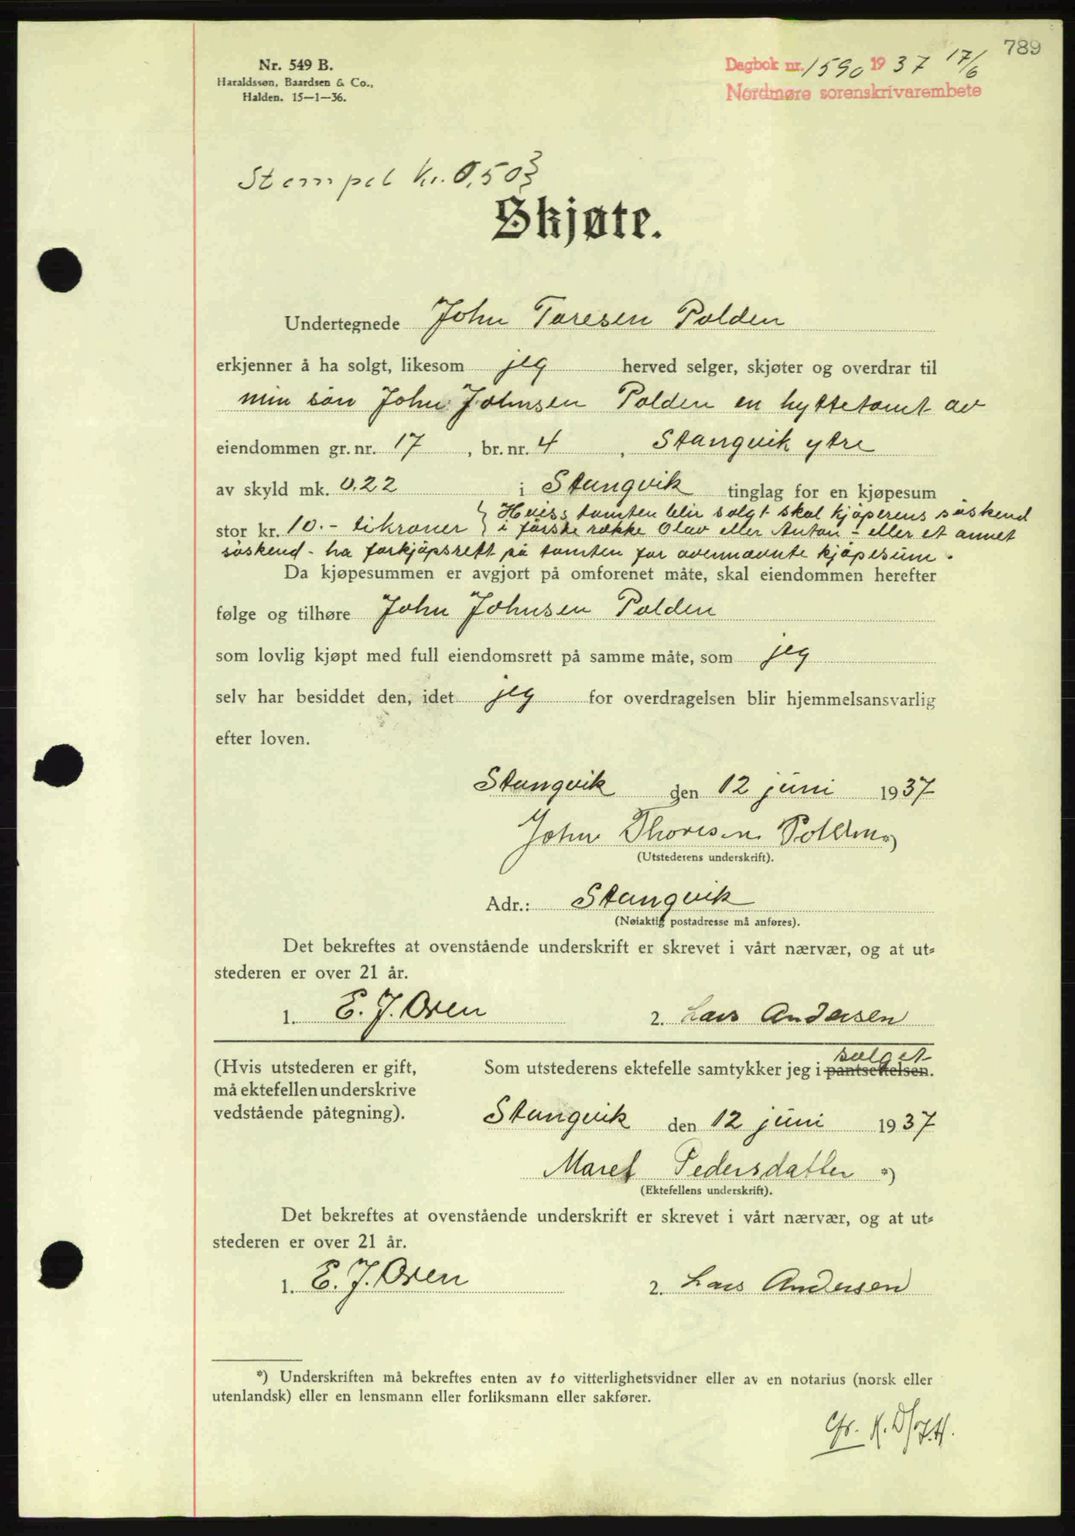 789
Nr. 549 B.
Haraldssøn, Baardsen & Co.,
Halden. 15—1—36.
Dagbok nr. 1590 1937 17/6
Nordmøre sorenskrivarembete
Stempel kr. 0,50
Skjøte.
Undertegnede John Toresen Polden
erkjenner å ha solgt, likesom jeg herved selger, skjøter og overdrar til
min sön John Johnsen Polden en hyttetomt av
eiendommen gr. nr. 17, br. nr. 4, Stangvik ytre
av skyld mk. 0.22 i Stangvik tinglag for en kjøpesum
Hviss tomten blir solgt skal kjöperens söskend
stor kr. 10.- tikroner i förste række Olav eller Anton - eller et annet
söskend - ha forkjöpsrett på tomten for ovennævnte kjöpesum.
Da kjøpesummen er avgjort på omforenet måte, skal eiendommen herefter
følge og tilhøre John Johnsen Polden
som lovlig kjøpt med full eiendomsrett på samme måte, som jeg
selv har besiddet den, idet jeg for overdragelsen blir hjemmelsansvarlig
efter loven.
Stangvik den 12 juni 1937
John Thoresen Polden *)
(Utstederens underskrift).
Adr.: Stangvik
(Nøiaktig postadresse må anføres).
Det bekreftes at ovenstående underskrift er skrevet i vårt nærvær, og at ut=
stederen er over 21 år.
1. E. J. Øren 2. Lars Andersen
salget
(Hvis utstederen er gift, Som utstederens ektefelle samtykker jeg i pantsettelsen.
må ektefellen underskrive
vedstående påtegning). Stangvik den 12 juni 1937
Maret Pedersdatter *)
(Ektefellens underskrift).
Det bekreftes at ovenstående underskrift er skrevet i vårt nærvær, og at ut=
stederen er over 21 år.
1. E. J. Øren 2. Lars Andersen
*) Underskriften må bekreftes enten av to vitterlighetsvidner eller av en notarius (norsk eller
utenlandsk) eller en lensmann eller forliksmann eller sakfører.
cfr. K. D/J.H.